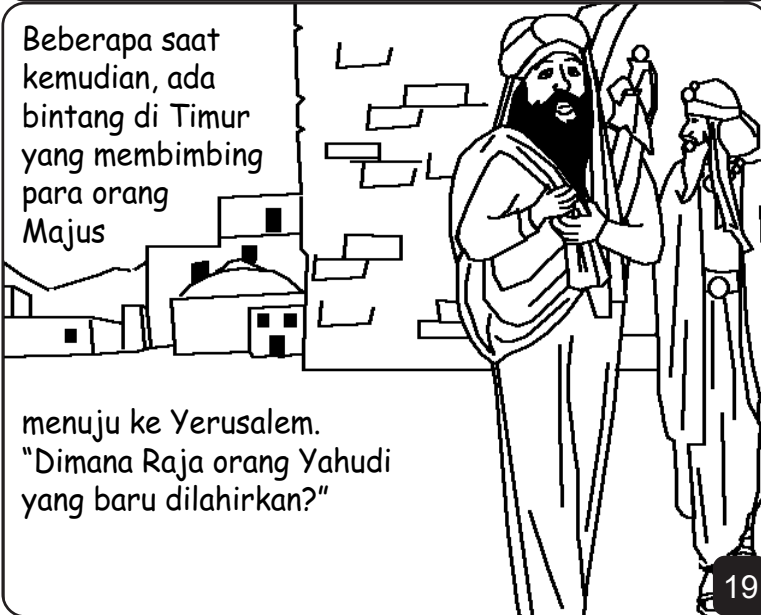 Beberapa saat
kemudian, ada
bintang di Timur
yang membimbing
para orang
Majus
menuju ke Yerusalem.
“Dimana Raja orang Yahudi
yang baru dilahirkan?”
19